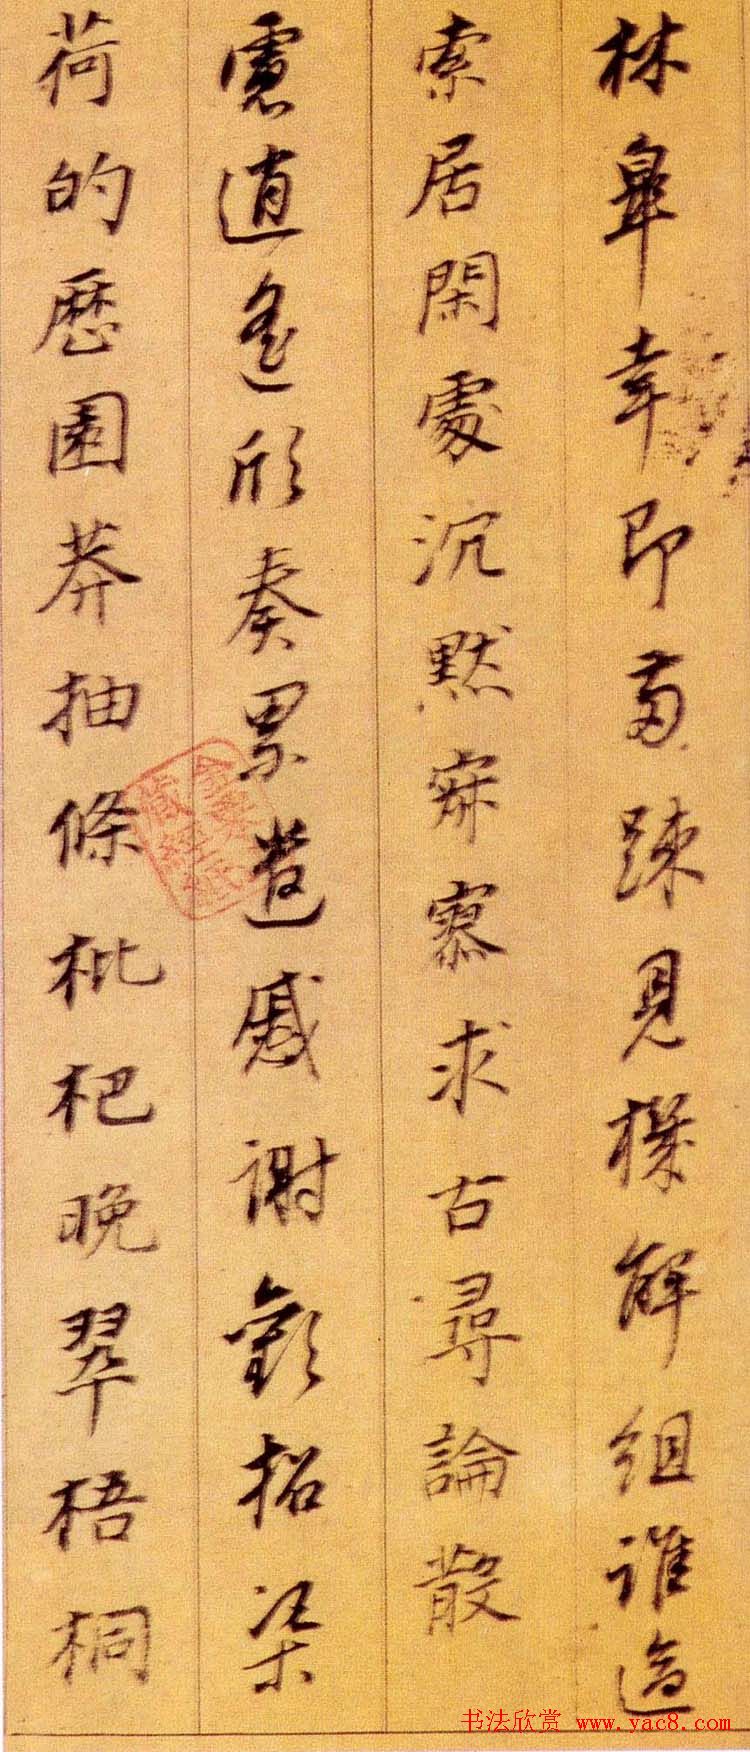 林皋幸即兩踈見機解組誰逼
索居閑處沉默寂寥求古尋論散
慮逍遙欣奏累遣慼謝歡招渠
荷的歷園莽抽條枇杷晚翠梧桐
金粟山
藏經紙
书法欣赏 www.yac8.com